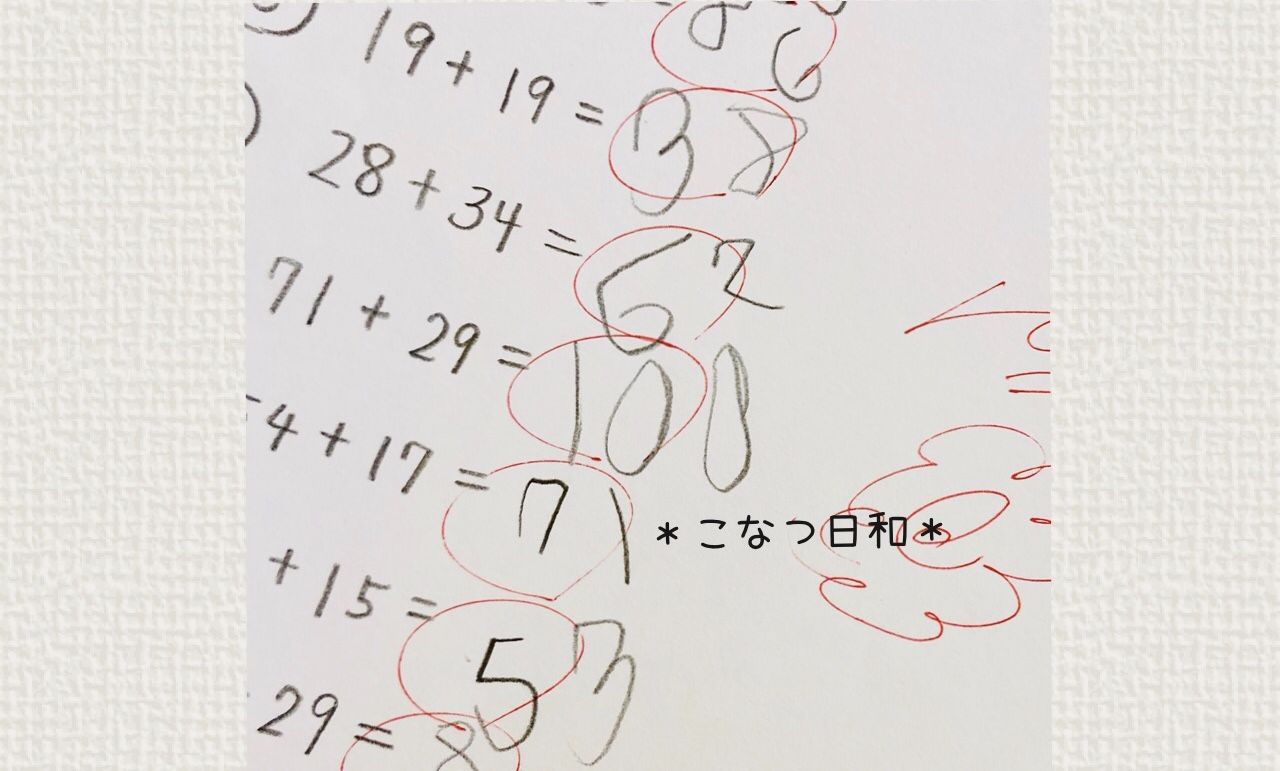 86
19 + 19 = 38
28 + 34 = 62
71 + 29 = 100
4 + 17 = 71
+ 15 = 53
29 = 8
* こなつ日和 *